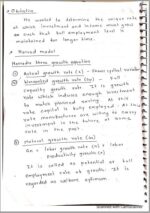 • Objective
He wanted to determine the unique rate
at which investment and income must grow
so that full employment level is
maintained for longer time.
• Harrod model
Harrods three growth equation
① Actual growth rate (G) =
② Warranted growth rate (Gw) = Full
capacity growth rate. It is growth
rate which induces enough investment
to match planned saving. At this
rate capital is fully employed. At this
rate manufacturers are willing to carry
investment in the future at same
rate in the past.
③ Natural growth rate (Gn)
Gn = labor growth rate (n) + labor
productivity growth (t)
It is called as potential or full
employment rate of growth. It is
regarded as welfare optimum.